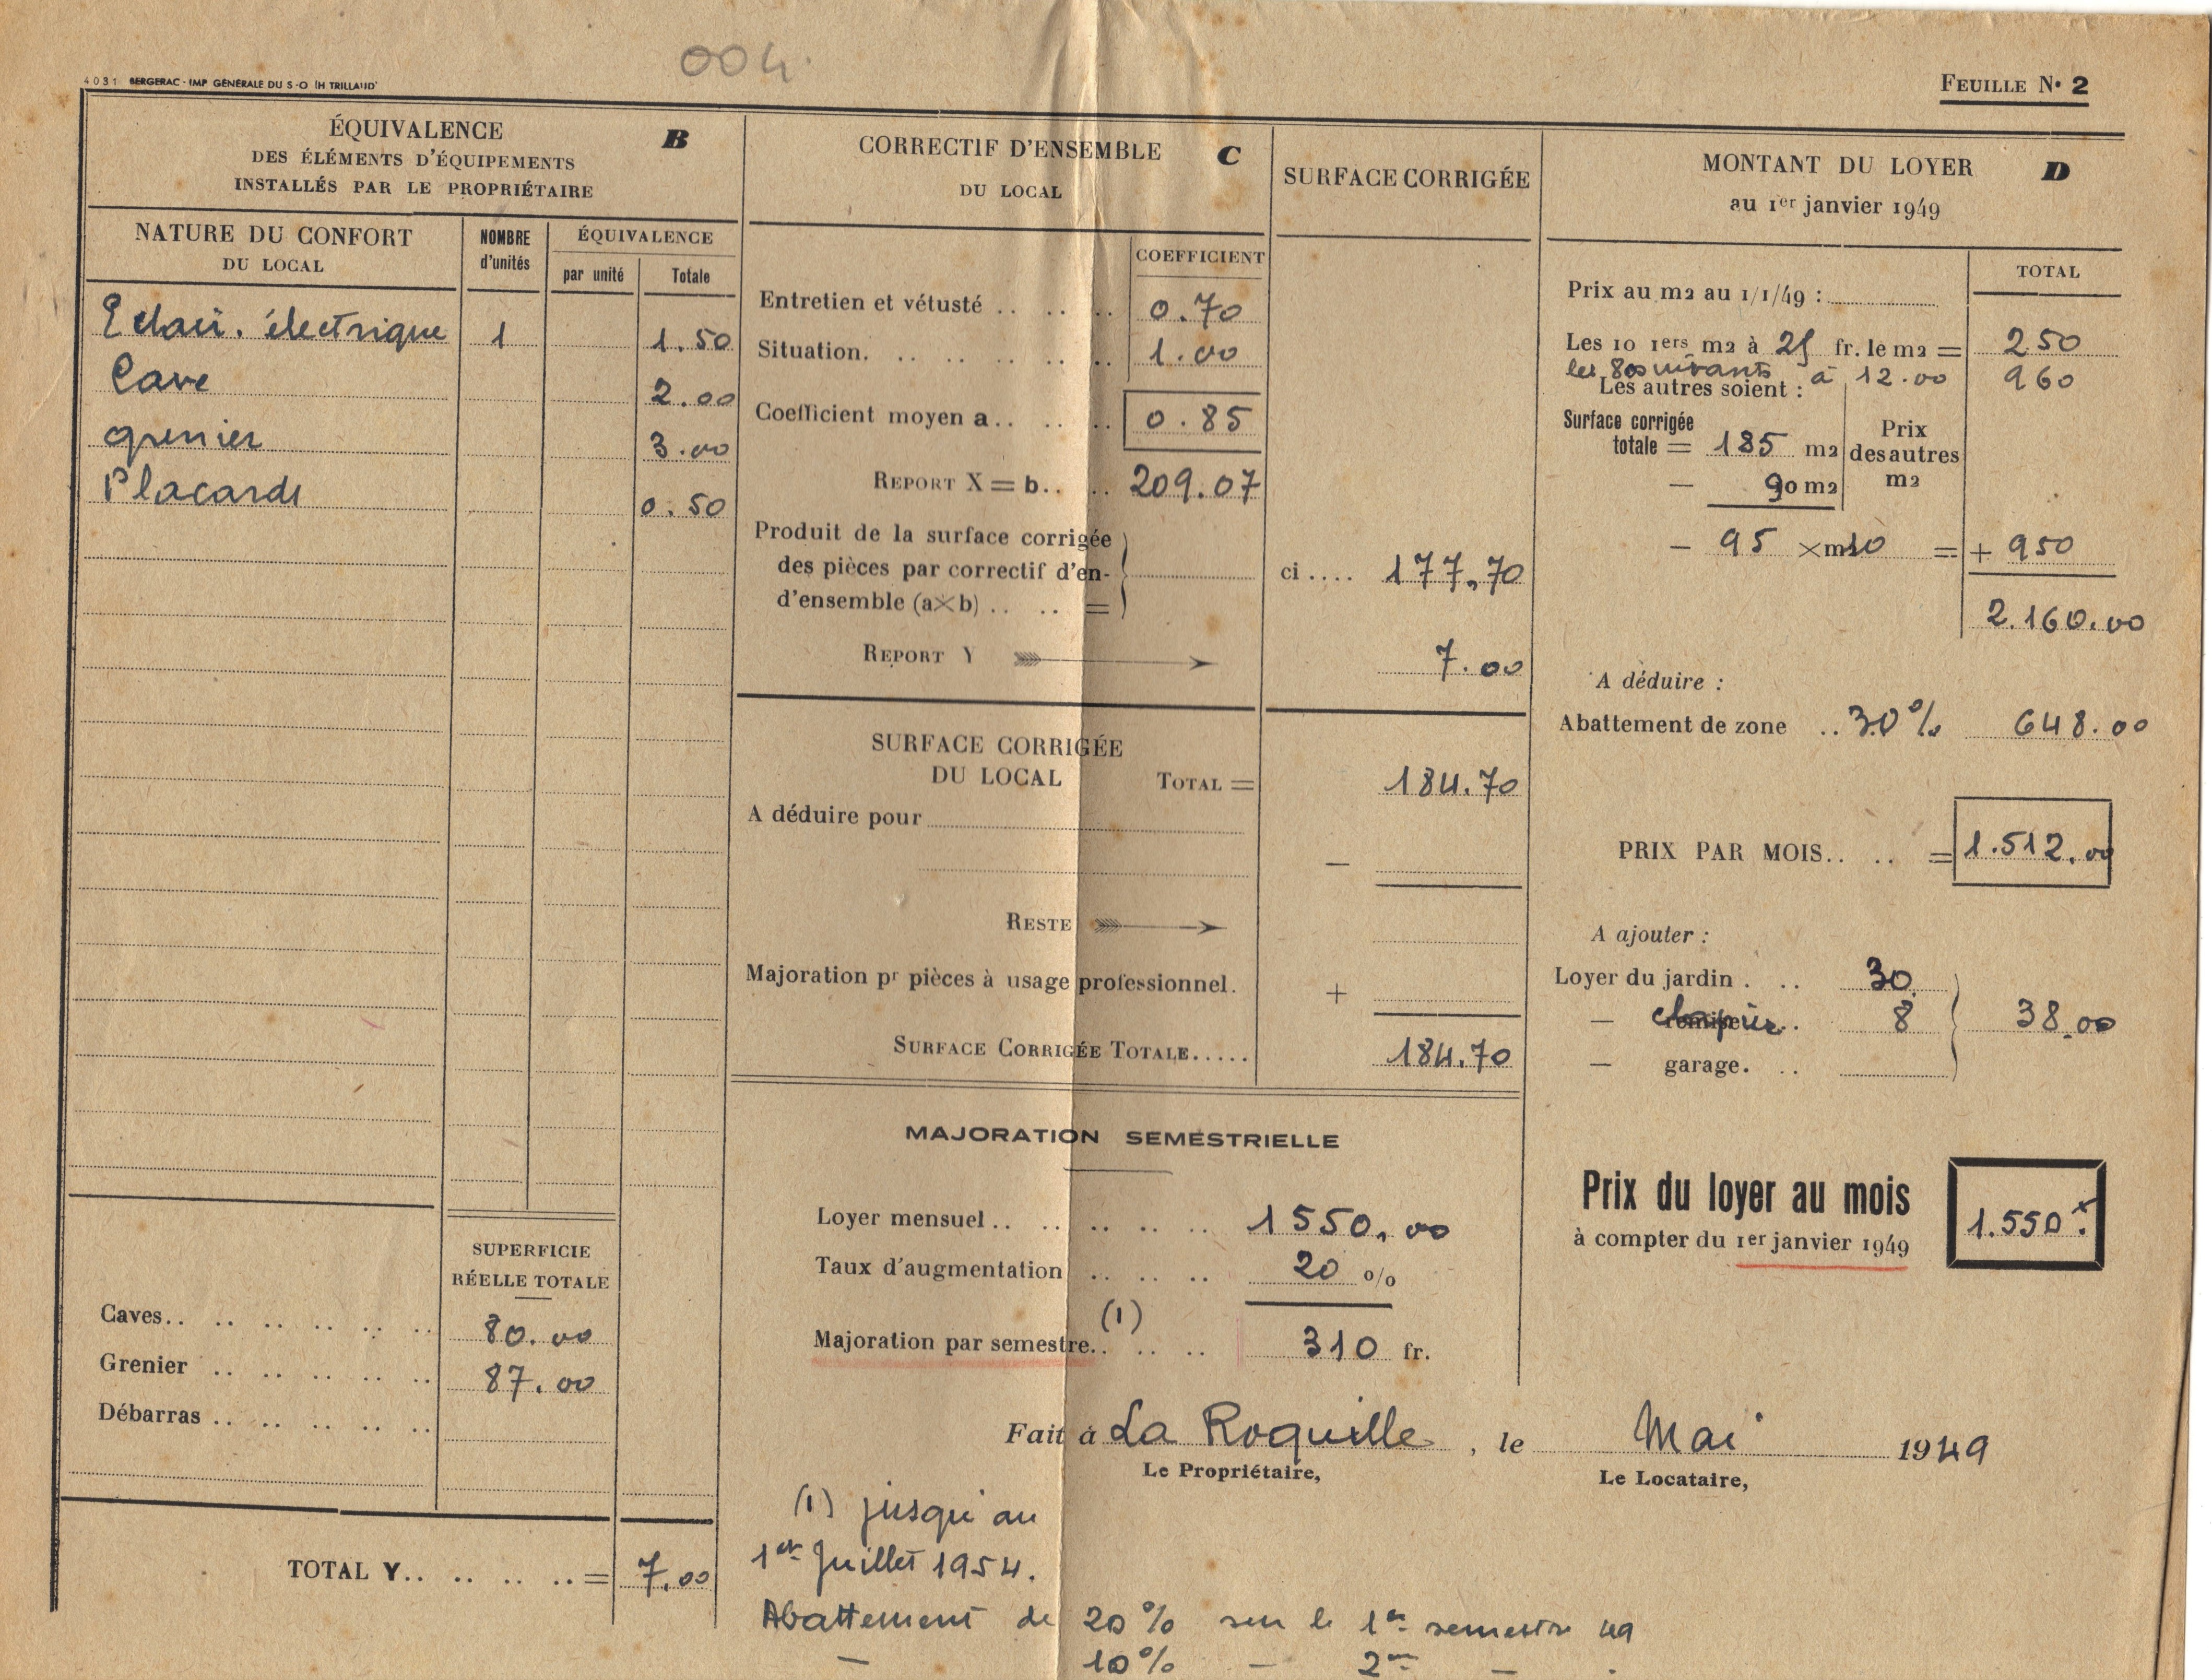 004.
4031 BERGERAC - IMP GÉNÉRALE DU S-O (H TRILLAUD)
FEUILLE N° 2
ÉQUIVALENCE B
DES ÉLÉMENTS D'ÉQUIPEMENTS
INSTALLÉS PAR LE PROPRIÉTAIRE
NATURE DU CONFORT
DU LOCAL
NOMBRE
d'unités
ÉQUIVALENCE
par unité Totale
Eclair. électrique 1 1.50
Cave 2.00
grenier 3.00
Placards 0.50
SUPERFICIE
RÉELLE TOTALE
Caves.. .. .. .. .. .. 80.00
Grenier .. .. .. .. .. 87.00
Débarras .. .. .. .. ..
TOTAL Y.. .. .. .. = 7.00
CORRECTIF D'ENSEMBLE C
DU LOCAL
SURFACE CORRIGÉE
COEFFICIENT
Entretien et vétusté .. .. .. 0.70
Situation. .. .. .. .. .. 1.00
Coefficient moyen a.. .. .. 0.85
REPORT X = b.. .. 209.07
Produit de la surface corrigée
des pièces par correctif d'en-
d'ensemble (a×b) .. .. = ci.... 177,70
REPORT Y 7.00
SURFACE CORRIGÉE
DU LOCAL TOTAL = 184.70
A déduire pour
−
RESTE
Majoration pr pièces à usage professionnel. +
SURFACE CORRIGÉE TOTALE..... 184.70
MAJORATION SEMESTRIELLE
Loyer mensuel.. .. .. .. .. 1550,00
Taux d'augmentation .. .. .. 20 %
(1)
Majoration par semestre.. .. .. 310 fr.
MONTANT DU LOYER D
au 1er janvier 1949
TOTAL
Prix au m2 au 1/1/49 :
Les 10 1ers m2 à 25 fr. le m2 = 250
les 80 suivants à 12.00 960
Les autres soient :
Surface corrigée
totale = 185 m2
Prix
des autres
m2
− 90 m2
− 95 × m 10 = + 950
2.160.00
A déduire :
Abattement de zone .. 30% 648.00
PRIX PAR MOIS.. .. = 1.512.00
A ajouter :
Loyer du jardin . .. 30
— clapier.. 8 38.00
— garage. ..
Prix du loyer au mois
à compter du 1er janvier 1949
1.550
Fait à La Roquille, le Mai 1949
Le Propriétaire, Le Locataire,
(1) jusqu'au
1er Juillet 1954.
Abattement de 20% sur le 1er semestre 49
— 10% — 2me — .